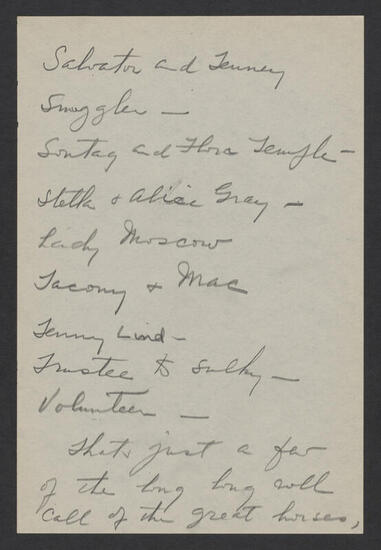 Salvator and Tenney
Smuggler —
Sontag and Flora Temple —
Stella & Alice Gray —
Lady Moscow
Tacony & Mac
Jenny Lind —
Trustee to sulky —
Volunteer —
Thats just a few
of the long long roll
call of the great horses,